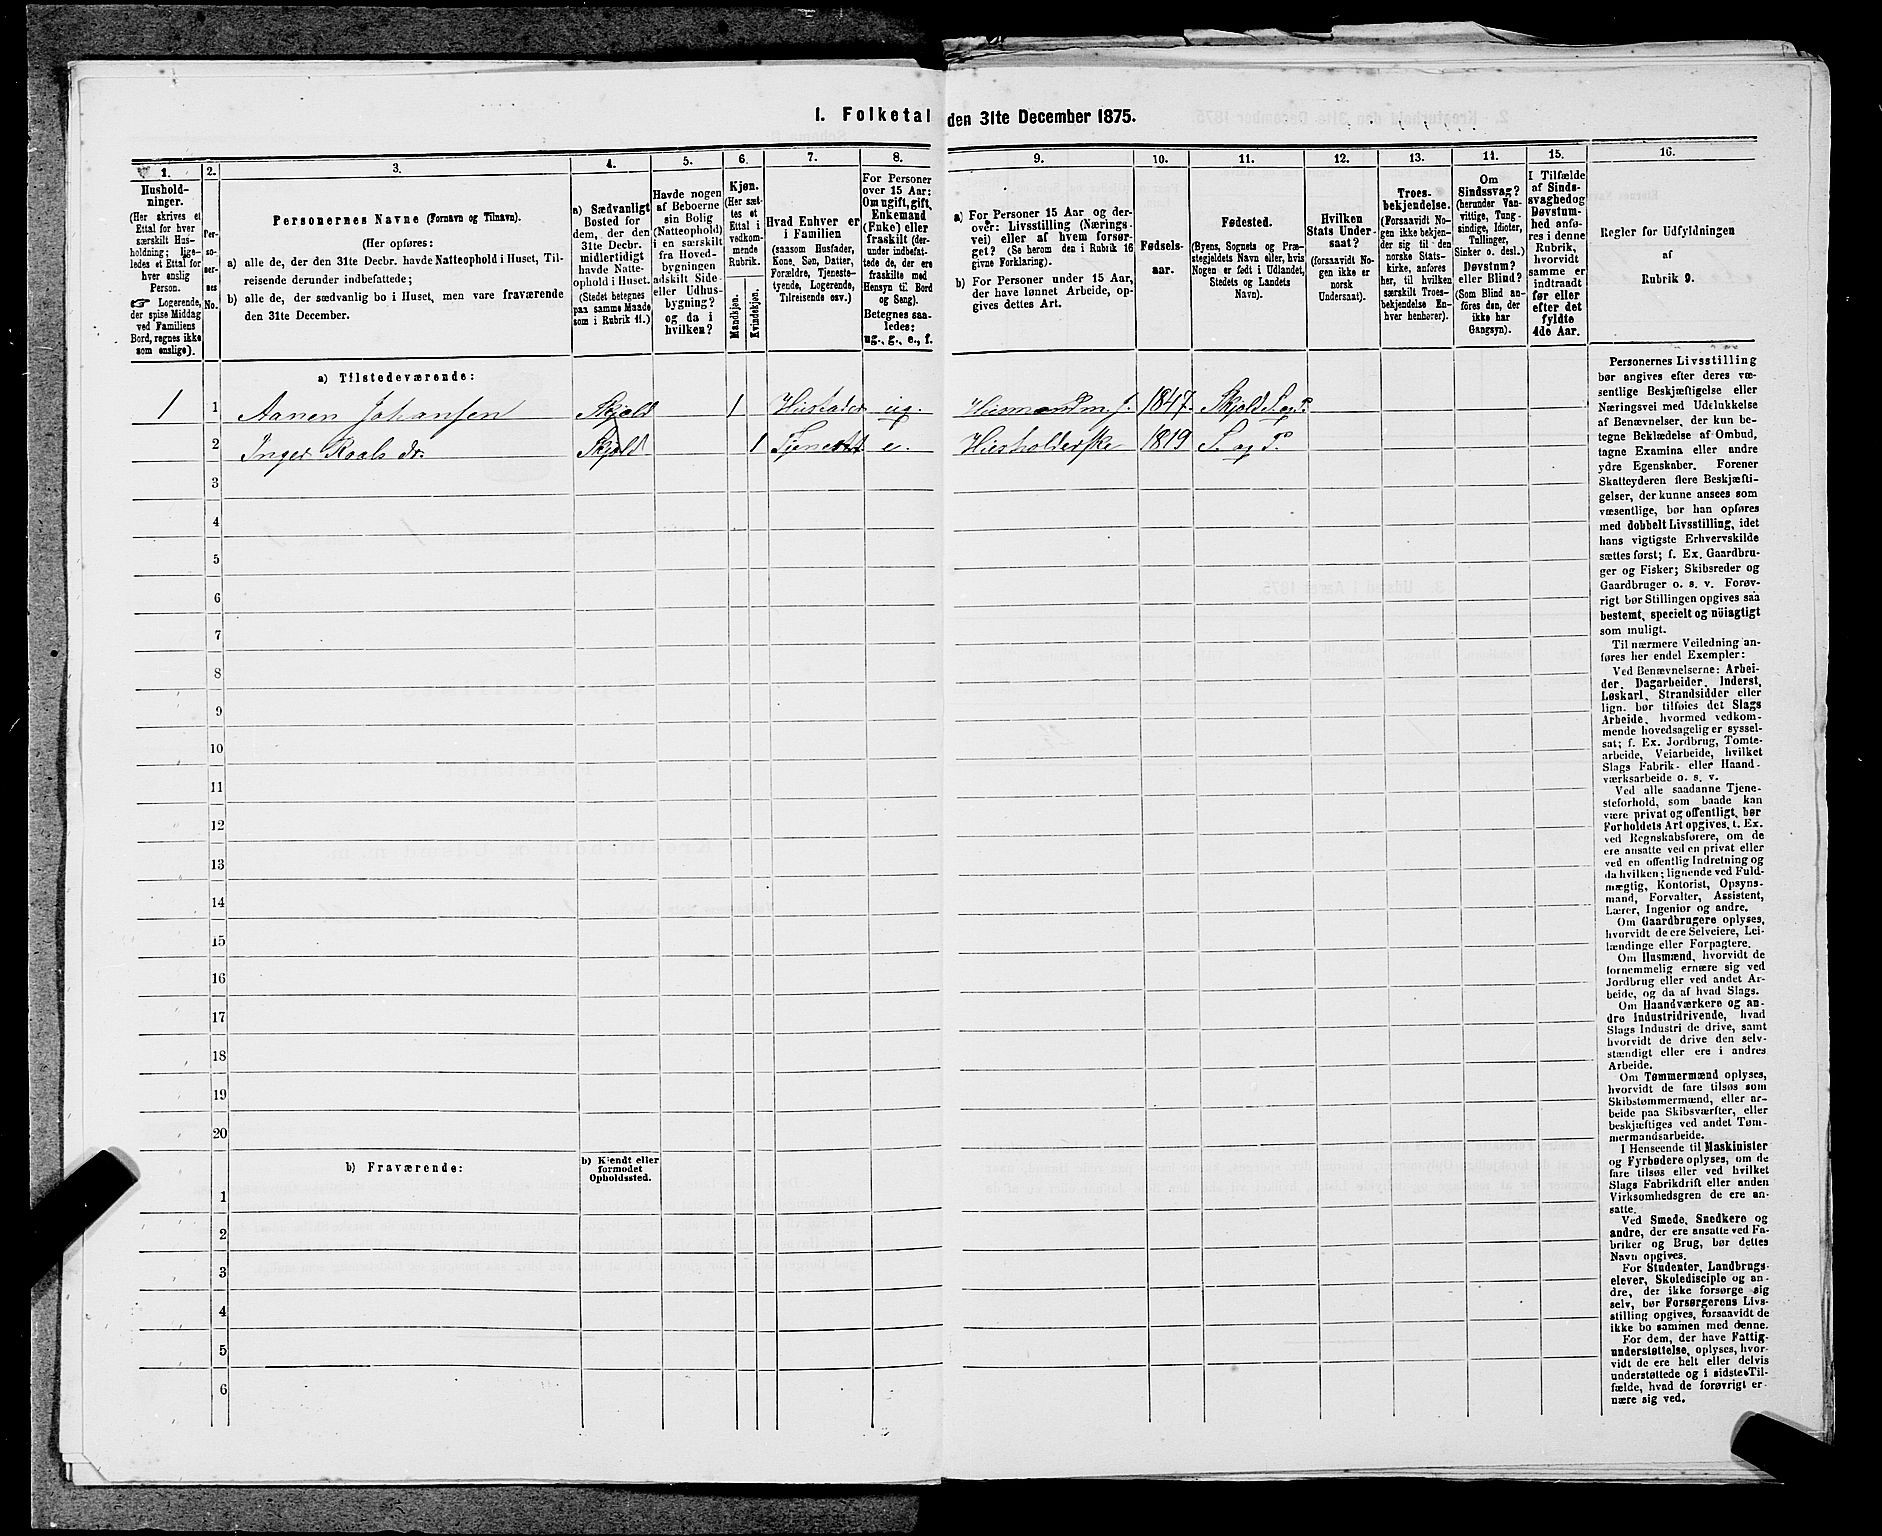 1. Folketal den 31te December 1875.
1.
Hushold-
ninger.
(Her skrives et
Ettal for hver
særskilt Hus-
holdning; lige-
ledes et Ettal for
hver enslig
Person.
☞ Logerende,
der spise Middag
ved Familiens
Bord, regnes ikke
som enslige).
2.
Per-
so-
ner-
nes
No.
3.
Personernes Navne (Fornavn og Tilnavn).
(Her opføres:
a) alle de, der den 31te Decbr. havde Natteophold i Huset, Til-
reisende derunder indbefattede;
b) alle de, der sædvanlig bo i Huset, men vare fraværende
den 31te December.
4.
a) Sædvanligt
Bosted for
dem, der den
31te Decbr.
midlertidigt
havde Natte-
ophold i Huset.
(Stedet betegnes
paa samme Maade
som i Rubrik 11.)
5.
Havde nogen
af Beboerne
sin Bolig
(Natteophold)
i en særskilt
fra Hoved-
bygningen
adskilt Side-
eller Udhus-
bygning?
og da i
hvilken?
6.
Kjøn.
(Her sæt-
tes et
Ettal i
vedkom-
mende
Rubrik.
Mandkjøn.
Kvindekjøn.
7.
Hvad Enhver er
i Familien
(saasom Husfader,
Kone, Søn, Datter,
Forældre, Tjeneste-
tyende, Logerende,
Tilreisende osv.)
8.
For Personer
over 15 Aar:
Om ugift, gift,
Enkemand
(Enke) eller
fraskilt (der-
under indbefat-
tede de, der ere
fraskilte med
Hensyn til Bord
og Seng).
Betegnes saa-
ledes:
ug., g., e., f.
9.
a) For Personer 15 Aar og der-
over: Livsstilling (Nærings-
vei) eller af hvem forsør-
get? (Se herom den i Rubrik 16
givne Forklaring).
b) For Personer under 15 Aar,
der have lønnet Arbeide, op-
gives dettes Art.
10.
Fødsels-
aar.
11.
Fødested.
(Byens, Sognets og Præ-
stegjeldets Navn eller, hvis
Nogen er født i Udlandet,
Stedets og Landets
Navn).
12.
Hvilken
Stats Under-
saat?
(forsaavidt No-
gen ikke er
norsk
Undersaat).
13.
Troes-
bekjendelse.
(Forsaavidt No-
gen ikke bekjen-
der sig til den
norske Stats-
kirke, anføres
her, til hvilken
særskilt Troes-
bekjendelse En-
hver henhører).
14.
Om
Sindssvag?
(herunder Van-
vittige, Tung-
sindige, Idioter,
Tullinger,
Sinker o. desl.).
Døvstum?
eller Blind?
(Som Blind an-
føres den, der
ikke har
Gangsyn).
15.
I Tilfælde
af Sinds-
svaghed og
Døvstum-
hed anfø-
res i denne
Rubrik,
hvorvidt
samme er
indtraadt
før eller
efter det
fyldte
4de Aar.
16.
Regler for Udfyldningen
af
Rubrik 9.
a) Tilstedeværende:
1 1 Aanen Johansen Skjold 1 Husfader ug. Husmand m. J. 1847 Skjold S. og P.
2 Inger Roals dr. Skjold 1 Tjenestet e. Husholderske 1819 S. og P.
3
4
5
6
7
8
9
10
11
12
13
14
15
16
17
18
19
20
b) Fraværende:
b) Kjendt eller
formodet
Opholdssted.
1
2
3
4
5
6
Personernes Livsstilling
bør angives efter deres væ-
sentlige Beskjæftigelse eller
Næringsvei med Udelukkelse
af Benævnelser, der kun be-
tegne Beklædelse af Ombud,
tagne Examina eller andre
ydre Egenskaber. Forener
Skatteyderen flere Beskjæfti-
gelser, der kunne ansees som
væsentlige, bør han opføres
med dobbelt Livsstilling, idet
hans vigtigste Erhvervskilde
sættes først; f. Ex. Gaardbru-
ger og Fisker; Skibsreder og
Gaardbruger o. s. v. Forøv-
rigt bør Stillingen opgives saa
bestemt, specielt og nöiagtigt
som muligt.
Til nærmere Veiledning an-
føres her endel Exempler:
Ved Benævnelserne: Arbei-
der, Dagarbeider, Inderst,
Løskarl, Strandsidder eller
lign. bør tilføies det Slags
Arbeide, hvormed vedkom-
mende hovedsagelig er syssel-
sat; f. Ex. Jordbrug, Tomte-
arbeide, Veiarbeide, hvilket
Slags Fabrik- eller Haand-
værksarbeide o. s. v.
Ved alle saadanne Tjene-
steforhold, som baade kan
være privat og offentligt, bør
Forholdets Art opgives, t. Ex.
ved Regnskabsførere, om de
ere ansatte ved en privat eller
ved en offentlig Indretning og
da hvilken; lignende ved Fuld-
mægtig, Kontorist, Opsyns-
mand, Forvalter, Assistent,
Lærer, Ingeniør og andre.
Om Gaardbrugere oplyses,
hvorvidt de ere Selveiere, Lei-
lændinge eller Forpagtere.
Om Husmænd, hvorvidt de
fornemmelig ernære sig ved
Jordbrug eller ved andet Ar-
beide, og da af hvad Slags.
Om Haandværkere og an-
dre Industridrivende, hvad
Slags Industri de drive, samt
hvorvidt de drive den selv-
stændigt eller ere i andres
Arbeide.
Om Tømmermænd oplyses,
hvorvidt de fare tilsøs som
Skibstømmermænd, eller ar-
beide paa Skibsværfter, eller
beskjæftiges ved andet Tøm-
mermandsarbeide.
I Henseende til Maskinister
og Fyrbødere oplyses, om de
fare tilsøs eller ved hvilket
Slags Fabrikdrift eller anden
Virksomhedsgren de ere an-
satte.
Ved Smede, Snedkere og
andre, der ere ansatte ved Fa-
briker og Brug, bør dettes
Navn opgives.
For Studenter, Landbrugs-
elever, Skoledisciple og an-
dre, der ikke forsørge sig
selv, bør Forsørgerens Livs-
stilling opgives, forsaavidt de
ikke bo sammen med denne.
For dem, der have Fattig-
understøttelse, oplyses, hvor-
vidt de ere helt eller delvis
understøttede og i sidste Til-
fælde, hvad de forøvrigt er-
nære sig ved.